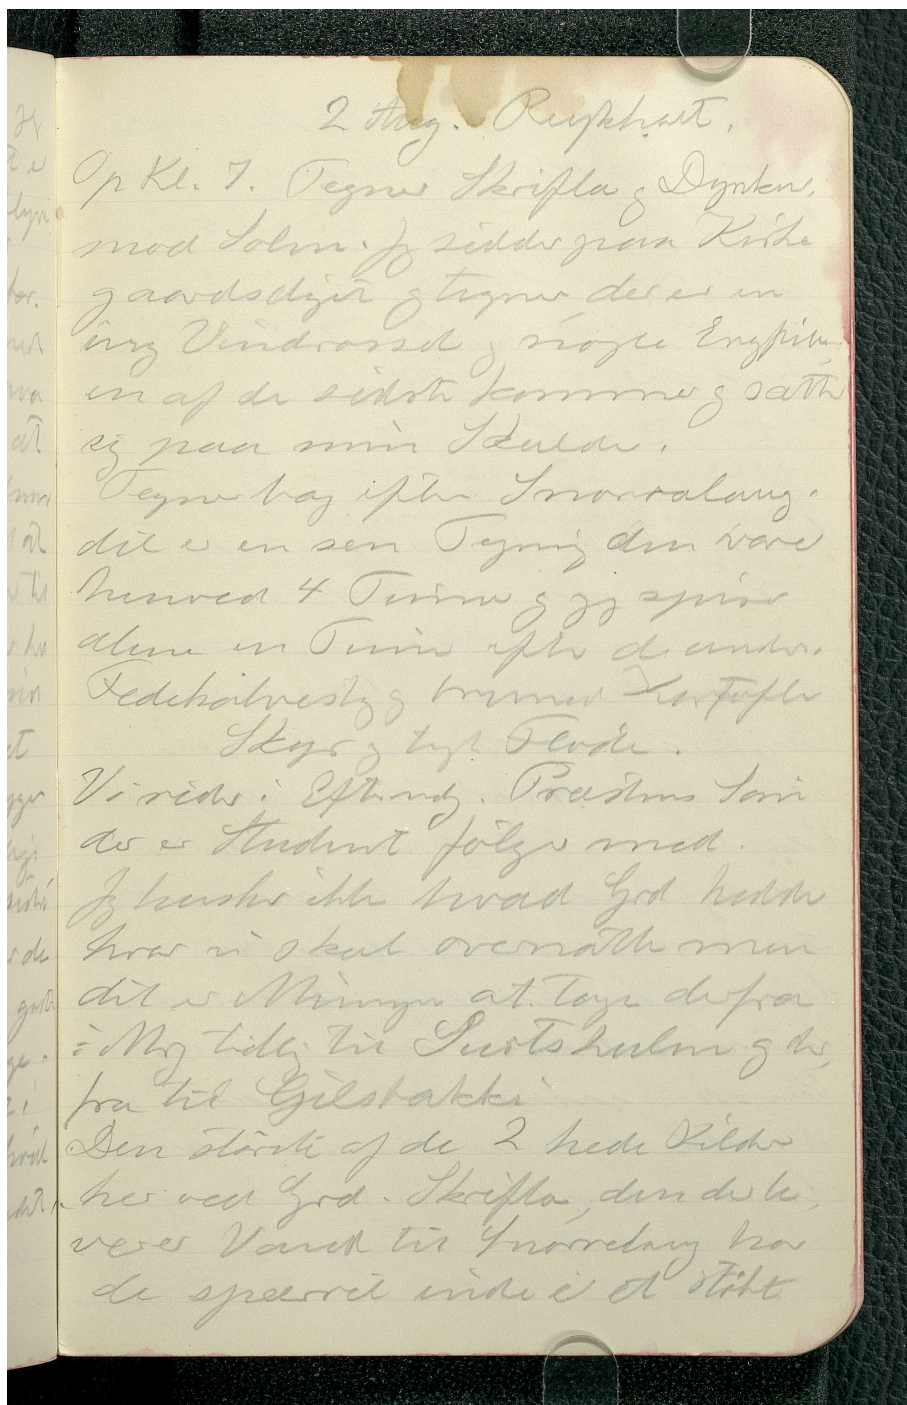 2 Aug. Reykholt.
Op Kl. 7. Tegner Skrifla og Dynken,
mod Solen. Jeg sidder paa Kirke
gaardsdiget og tegner der er en
ung Vindrossel og nogle Engpiber
en af de sidste kommer og sætter
sig paa min Skulder.
Tegner bag efter Snorralaug.
det er en sen Tegning den varer
henved 4 Timer og jeg spiser
alene en Time efter de andre.
Fedekalvesteg og brunede Kartofler
Skyr og tyk Fløde.
Vi rider i Eftermdg. Præstens Søn
der er Student følger med.
Jeg husker ikke hvad Grd hedder
hvor vi skal overnatte men
det er Meningen at tage derfra
i Mrg tidlig til Surtshulen og der,
fra til Gilsbakki
Den største af de 2 hede Kilder
her ved Grd. Skrifla, den der le,
verer Vand til Snorrelaug har
de spærret inde i et støbt